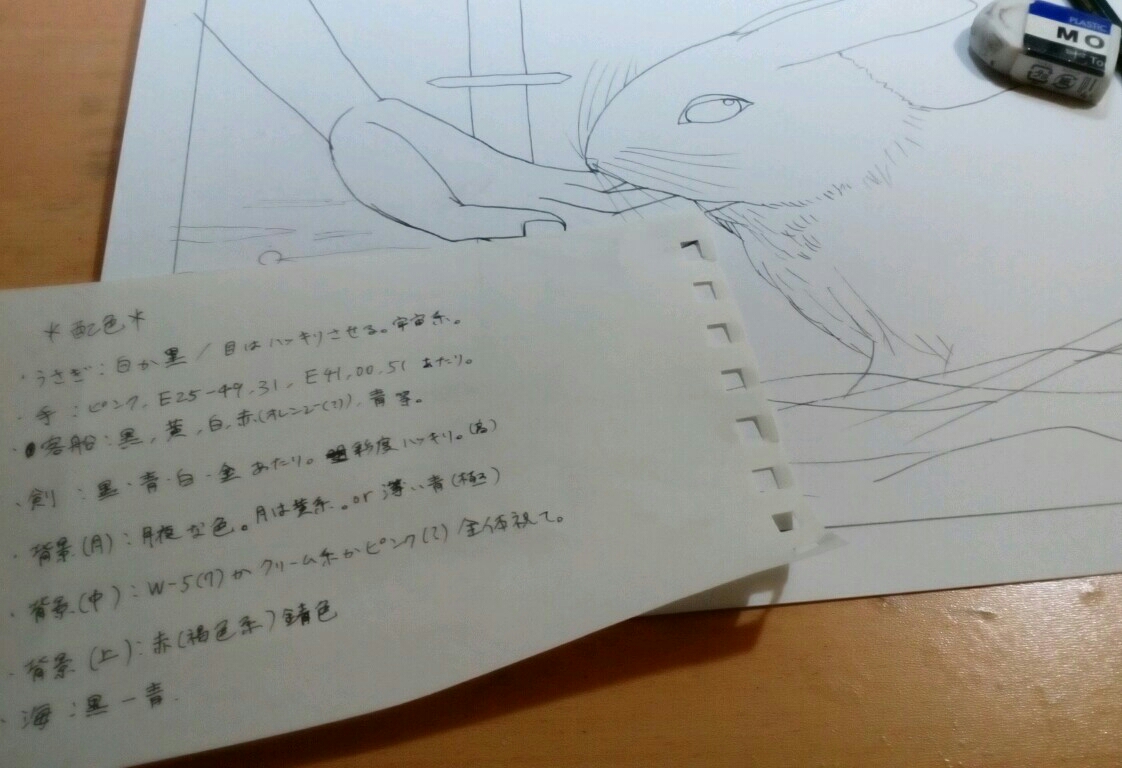 ＊配色＊
・うさぎ：白か黒／目はハッキリさせる。宇宙系。
・手：ピンク、E25-49.31、E41.00.51 あたり。
・客船：黒、黄、白、赤(オレンジ(?))、青等。
・剣：黒・青・白・金あたり。彩度ハッキリ。(高)
・背景(月)：月夜な色。月は黄系。or 薄い青(極)
・背景(中)：W-5(7)かクリーム系かピンク(?)全体視て。
・背景(上)：赤(褐色系)錆色
・海：黒－青.
PLASTIC
MO
To